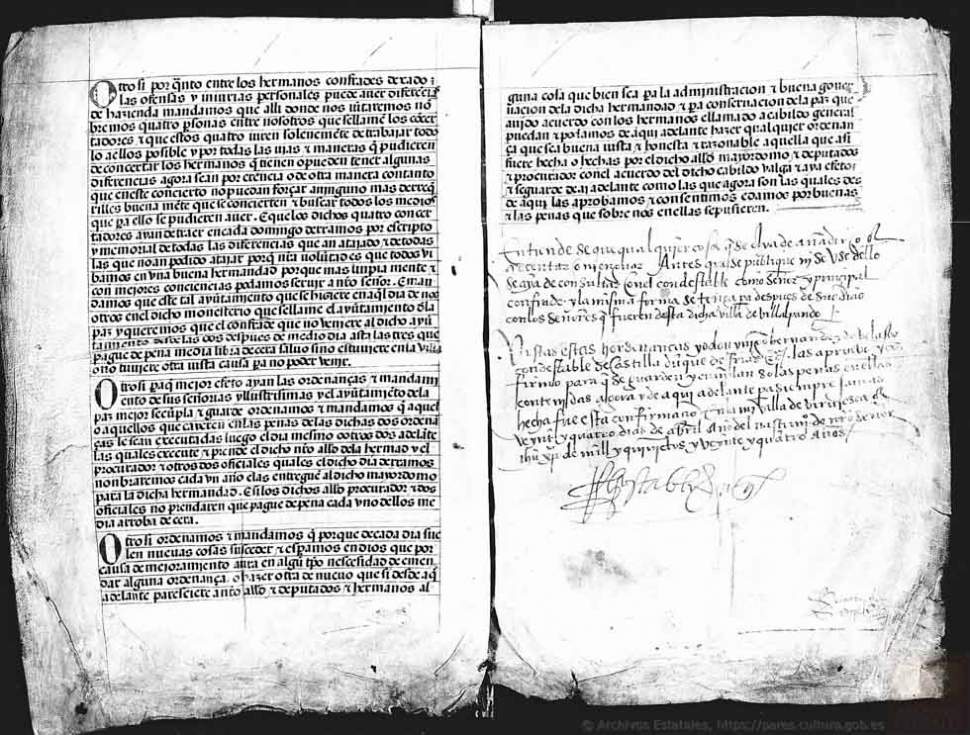 Otro si por q̃nto entre los hermanos confrades dexado
las ofensas y iniurias personales puede auer diferẽcia
de hazienda mandamos que alli donde nos iũtaremos nõ
bremos quatro p̱sonas entre nosotros que se llamẽ los cõcer
tadores ⁊ que estos quatro iuren solenemẽte de trabajar todo
lo a ellos posible y por todas las uias ⁊ maneras q̃ pudieren
de concertar los hermanos q̃ tienen o pueden tener algunas
diferencias agora sean por erencia o de otra manera con tanto
que en este concierto no puedan forçar a ninguno mas de req̃
rilles buena mẽte que se concierten ⁊ buscar todos los medios
que pa ello se pudieren auer. E que los dichos quatro concer
tadores ayan de traer en cada domingo derramos por escripto
y memorial de todas las diferencias que an atajado ⁊ de todas
las que no an podido atajar porq̃ nr̃a volũtad es que todos vi
bamos en vna buena hermandad porque mas limpia mente ⁊
con mejores conciencias podamos seruir a nr̃o señor. E man
damos que este tal ayũtamiento que se hiziere en aq̃l dia de nos
otros en el dicho monesterio que se llame el ayũtamiento d̃la
paz y queremos que el confrade que no veniere al dicho ayũ
tamiento desde las dos despues de medio dia asta las tres que
pague de pena media libra de cera saluo sino estuuiere en la villa
o no tuuiere otra iusta causa pa no poder venir.
Otro si paq̃ mejor efeto ayan las ordenanças ⁊ mandami
ento de sus señorias yllustrisimas y el ayũtamiẽto de la
paz mejor se cũpla ⁊ guarde ordenamos ⁊ mandamos q̃ aquel
o aquellos que cayeren en las penas de las dichas dos ordenã
ças le sean executadas luego el dia mesmo o otros dos adelãte
las quales execute ⁊ prende el dicho nr̃o allḏe de la hermãd y el
procurador ⁊ otros dos oficiales quales el dicho dia derramos
nonbraremos cada vn año e las entregue al dicho mayordomo
para la dicha hermandad. E si los dichos allḏe procurador ⁊ dos
oficiales no prendaren que pague de pena cada vno dellos me
dia arroba de cera.
Otro si ordenamos ⁊ mandamos q̃ porque de cada dia sue
len nueuas cosas suceder ⁊ esp̱amos en dios que por
causa de mejoramiento aura en algũ tp̃o nescesidad de emen
dar alguna ordenança, o hazer otra de nueuo que si desde aq̃
adelante paresciere a nr̃o allḏe ⁊ deputados ⁊ hermanos al
guna cosa que bien sea pa la administracion ⁊ buena gouer
nacion de la dicha hermandad ⁊ pa conseruacion de la paz que
auido acuerdo con los hermanos e llamado a cabildo general
puedan ⁊ podamos de aqui adelante hazer qualquier ordenan
ça que sea buena iusta ⁊ honesta ⁊ razonable a aquella que asi
fuere hecha o hechas por el dicho allḏe mayordomo ⁊ deputados
⁊ procurador con el acuerdo del dicho cabildo valga ⁊ aya efeto
⁊ se guarde de ay adelante como las que agora son las quales des
de aqui las aprobamos ⁊ consentimos ⁊ damos por buenas
⁊ las penas que sobre nos en ellas se pusieren.
Entiende se que qualquier cosa q̃ se aya de anadir
acrentar o menguar Antes que se publique ni se use dello
se aya de consultar con el condestable como señor y principal
confrade. y la misma forma se tenga pa despues de sus dias
con los señores q̃ fueren desta dicha villa de Villalpando
Vistas estas hordenanças yo don yñigo hernandez de Velasco
condestable de Castilla duque de frias &c. las aprueuo y co
firmo para q̃ se guarden y cunplan so las penas en ellas
contenidas agora y de aqui adelante pa sienpre jamas
hecha fue esta confirmaçion en mi villa de biruiesca a
veynte y quatro dias de abril Año del nasçimiº de nr̃o señor
ihũ xp̃o de mill y quinientos y veynte y quatro Años
El condestable Duq̃
© Archivos Estatales, https://pares.cultura.gob.es